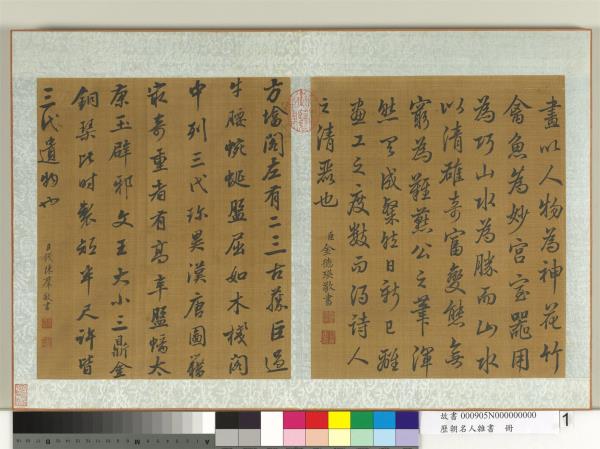 畫以人物為神花竹
禽魚為妙宮室器用
為巧山水為勝而山水
以清雄奇富變態無
窮為難燕公之筆渾
然天成粲然日新已離
畫工之度數而得詩人
之清麗也
臣金德瑛敬書
方塔閣左有二三古藤巨過
牛腰蜿蜒盤屈如木棧閣
中列三代珍異漢唐圖籍
最奇重者有高辛盤螭太
康玉辟邪文王大小三鼎金
銅琴比時製短半尺許皆
三代遺物也
臣錢陳群敬書
故書 000905N000000000
歷朝名人雜書 冊
1